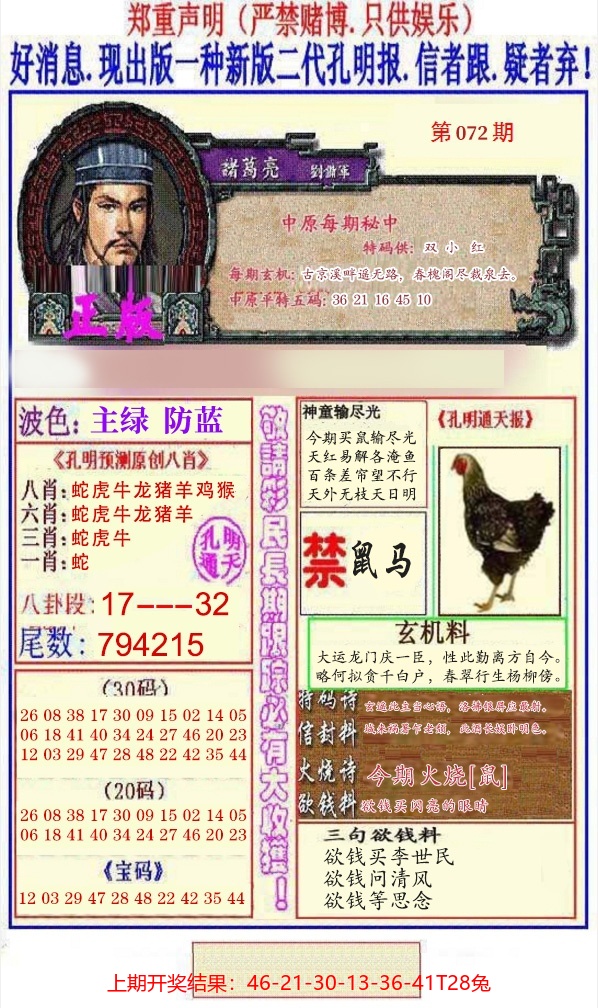 郑重声明（严禁赌博.只供娱乐）
好消息.现出版一种新版二代孔明报.信者跟.疑者弃！
第072期
諸葛亮 劉備軍
中原每期秘中
特码供：双 小 红
每期玄机：古京溪畔遥无路，春槐阁尽裁泉去。
中原平特五码：36 21 16 45 10
正版
波色：主绿 防蓝
《孔明预测原创八肖》
八肖：蛇虎牛龙猪羊鸡猴
六肖：蛇虎牛龙猪羊
三肖：蛇虎牛
一肖：蛇
孔明
通天
八卦段：17---32
尾数：794215
（30码）
26 08 38 17 30 09 15 02 14 05
06 18 41 40 34 24 27 46 20 23
12 03 29 47 28 48 22 42 35 44
（20码）
26 08 38 17 30 09 15 02 14 05
06 18 41 40 34 24 27 46 20 23
《宝码》
12 03 29 47 28 48 22 42 35 44
敬請彩民長期跟踪必有大收獲！
神童输尽光
今期买鼠输尽光
天红易解各淹鱼
百条差帘望不行
天外无枝天日明
《孔明通天报》
禁 鼠马
玄机料
大运龙门庆一臣，性此勤离方自今。
略何拟贪千白户，春翠行生杨柳傍。
特码诗
信封料
火烧诗 今期火烧[鼠]
欲钱料 欲钱买闪亮的眼睛
三句欲钱料
欲钱买李世民
欲钱问清风
欲钱等思念
上期开奖结果：46-21-30-13-36-41T28兔